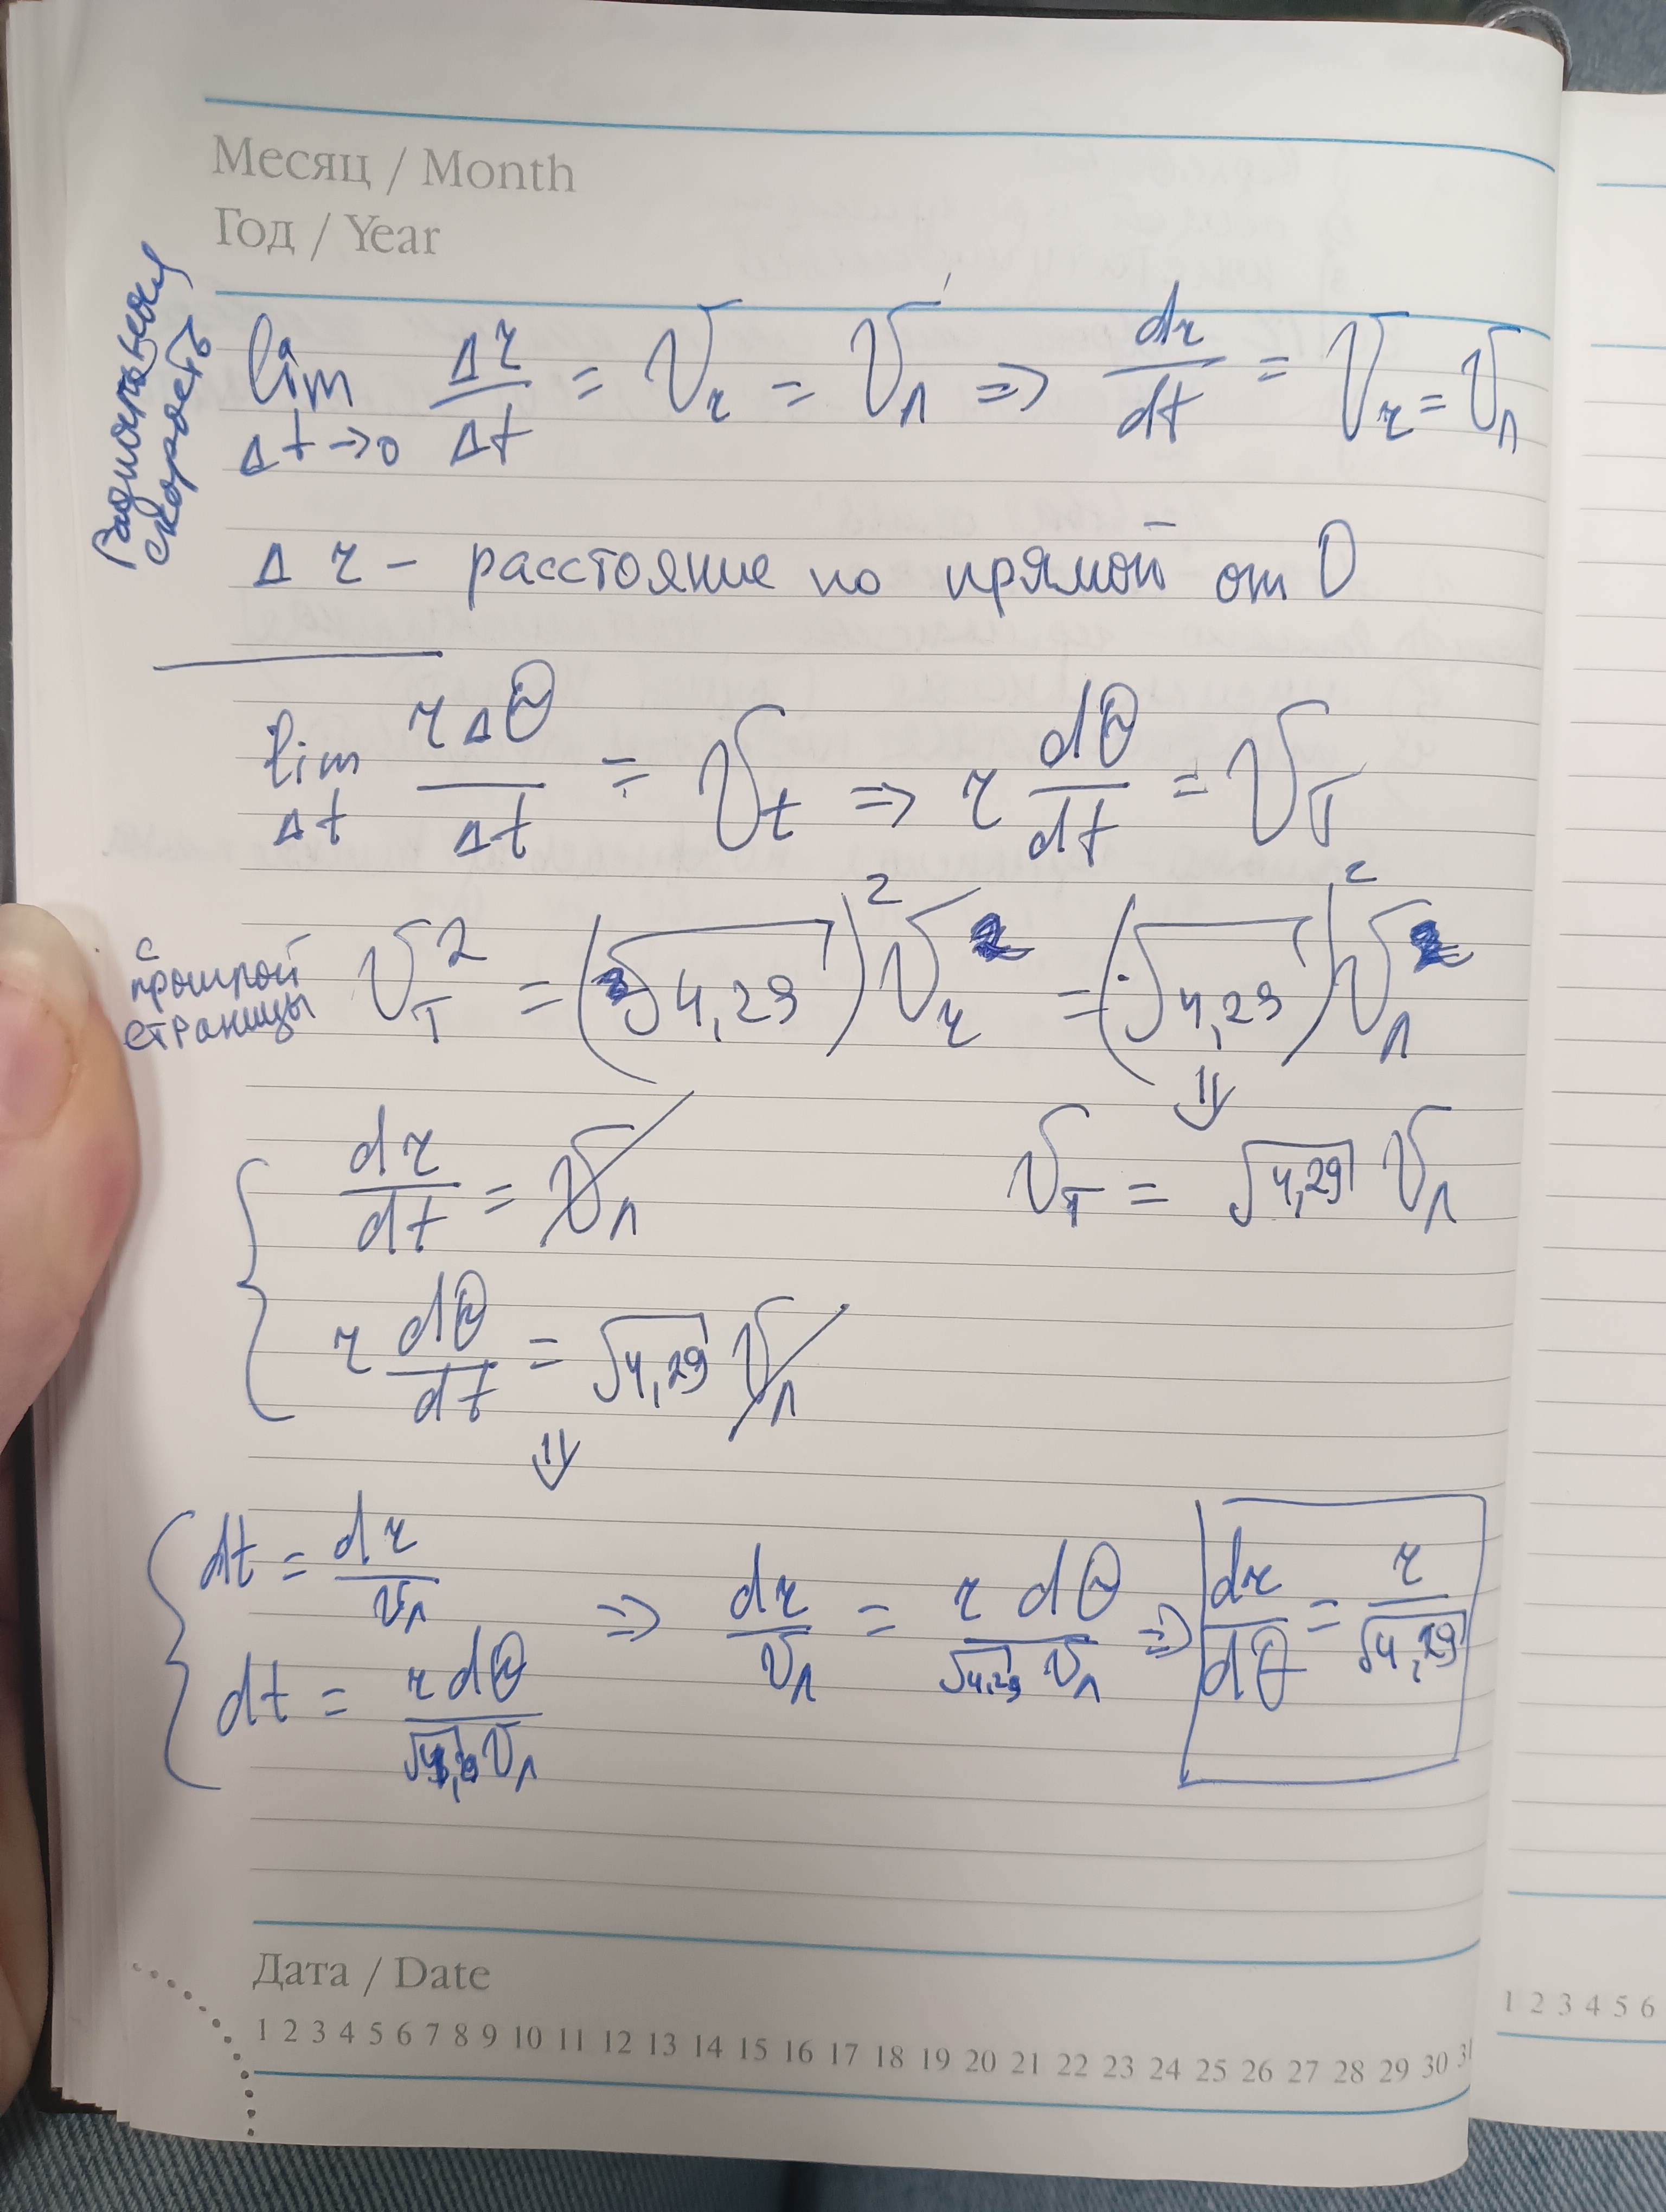 Месяц / Month
Год / Year
Радиальная скорость
lim Δt→0 Δr/Δt = V_r = V_л ⇒ dr/dt = V_r = V_л
Δ r – расстояние по прямой от О
lim Δt rΔθ/Δt = V_t ⇒ r dθ/dt = V_T
с прошлой страницы
V_T^2 = (√4,29)^2 V_r^2 = (√4,29)^2 V_л^2
⇓
dr/dt = V_л
V_T = √4,29 V_л
r dθ/dt = √4,29 V_л
⇓
dt = dr/V_л ⇒ dr/V_л = r dθ/√4,29 V_л ⇒ dr/dθ = r/√4,29
dt = r dθ/√4,29 V_л
Дата / Date
1 2 3 4 5 6 7 8 9 10 11 12 13 14 15 16 17 18 19 20 21 22 23 24 25 26 27 28 29 30 31
1 2 3 4 5 6